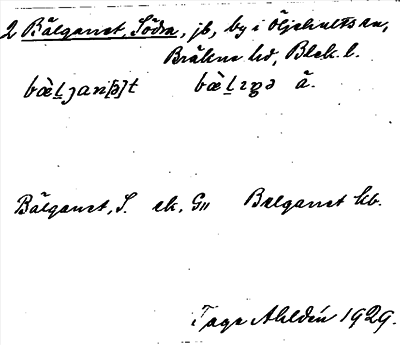 2 Bälganet, Södra, jb, by i Öljehults sn,
Bräkne hd, Blek. l.
bæ̀ḻɟan[ə]t bæ̀ḻɪŋə å.
Bälganet, S. ek, G11 Belganet kb.
Tage Ahldén 1929.